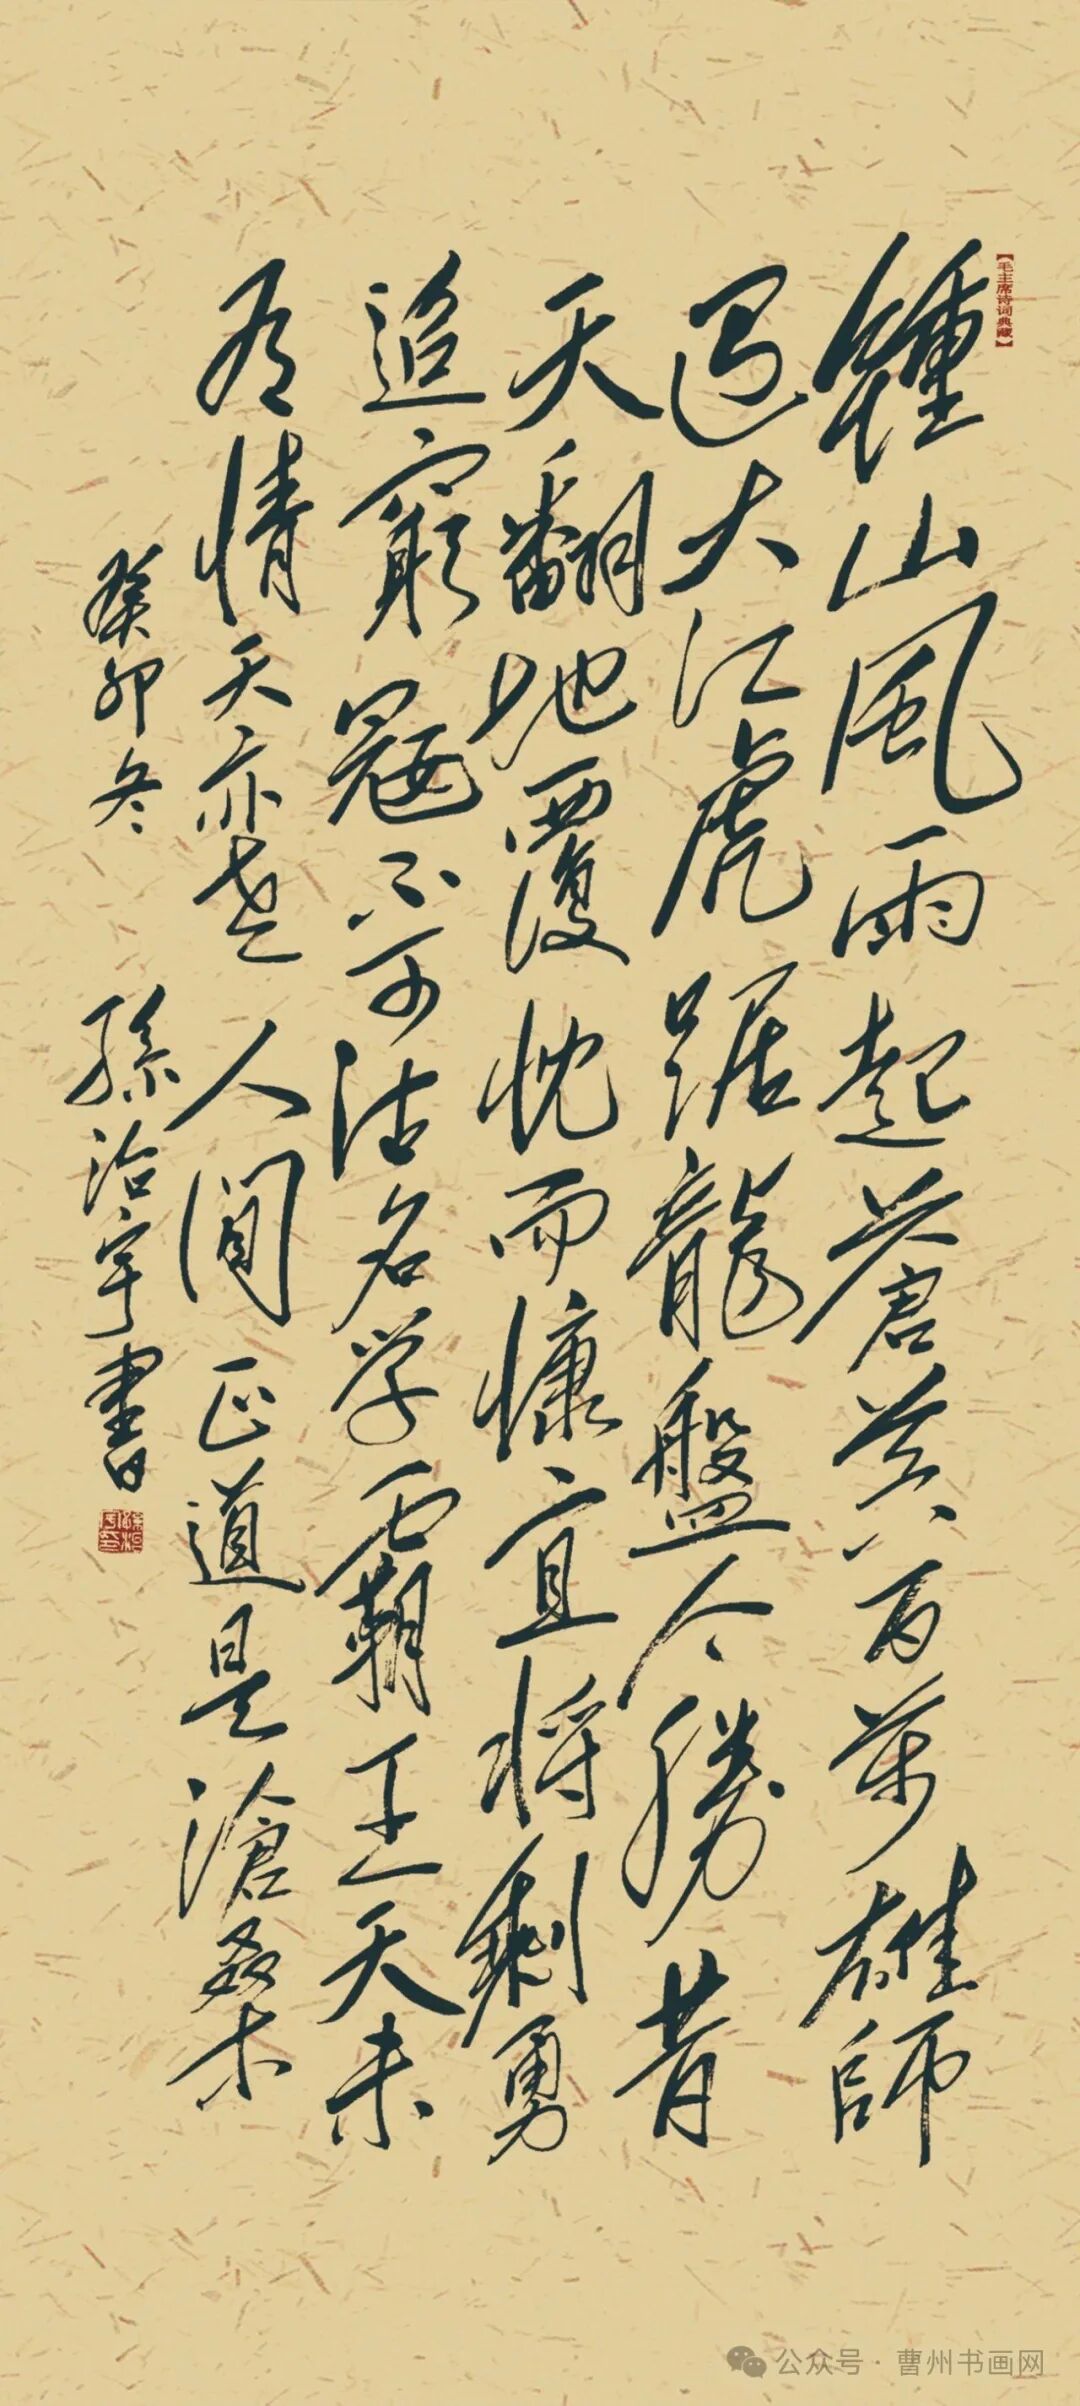 【毛主席诗词典藏】
鍾山風雨起蒼黃百萬雄師
過大江虎踞龍盤今勝昔
天翻地覆慨而慷宜将剩勇
追窮寇不可沽名学霸王天若
有情天亦老人間正道是滄桑
癸卯冬 孫治宇書
公众号·曹州书画网